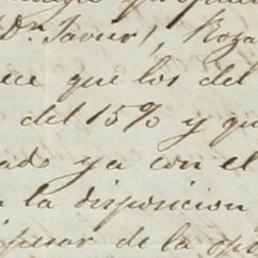 Dn. Javier, Roza
ece que los del
del 15% y qu
ado ya con el
n la disposicion
á pesar de la opo